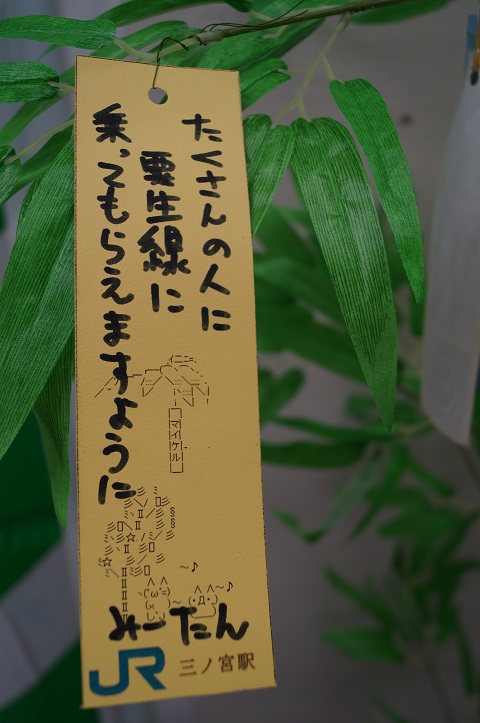 たくさんの人に
粟生線に
乗ってもらえますように
マイケル
みーたん
JR 三ノ宮駅